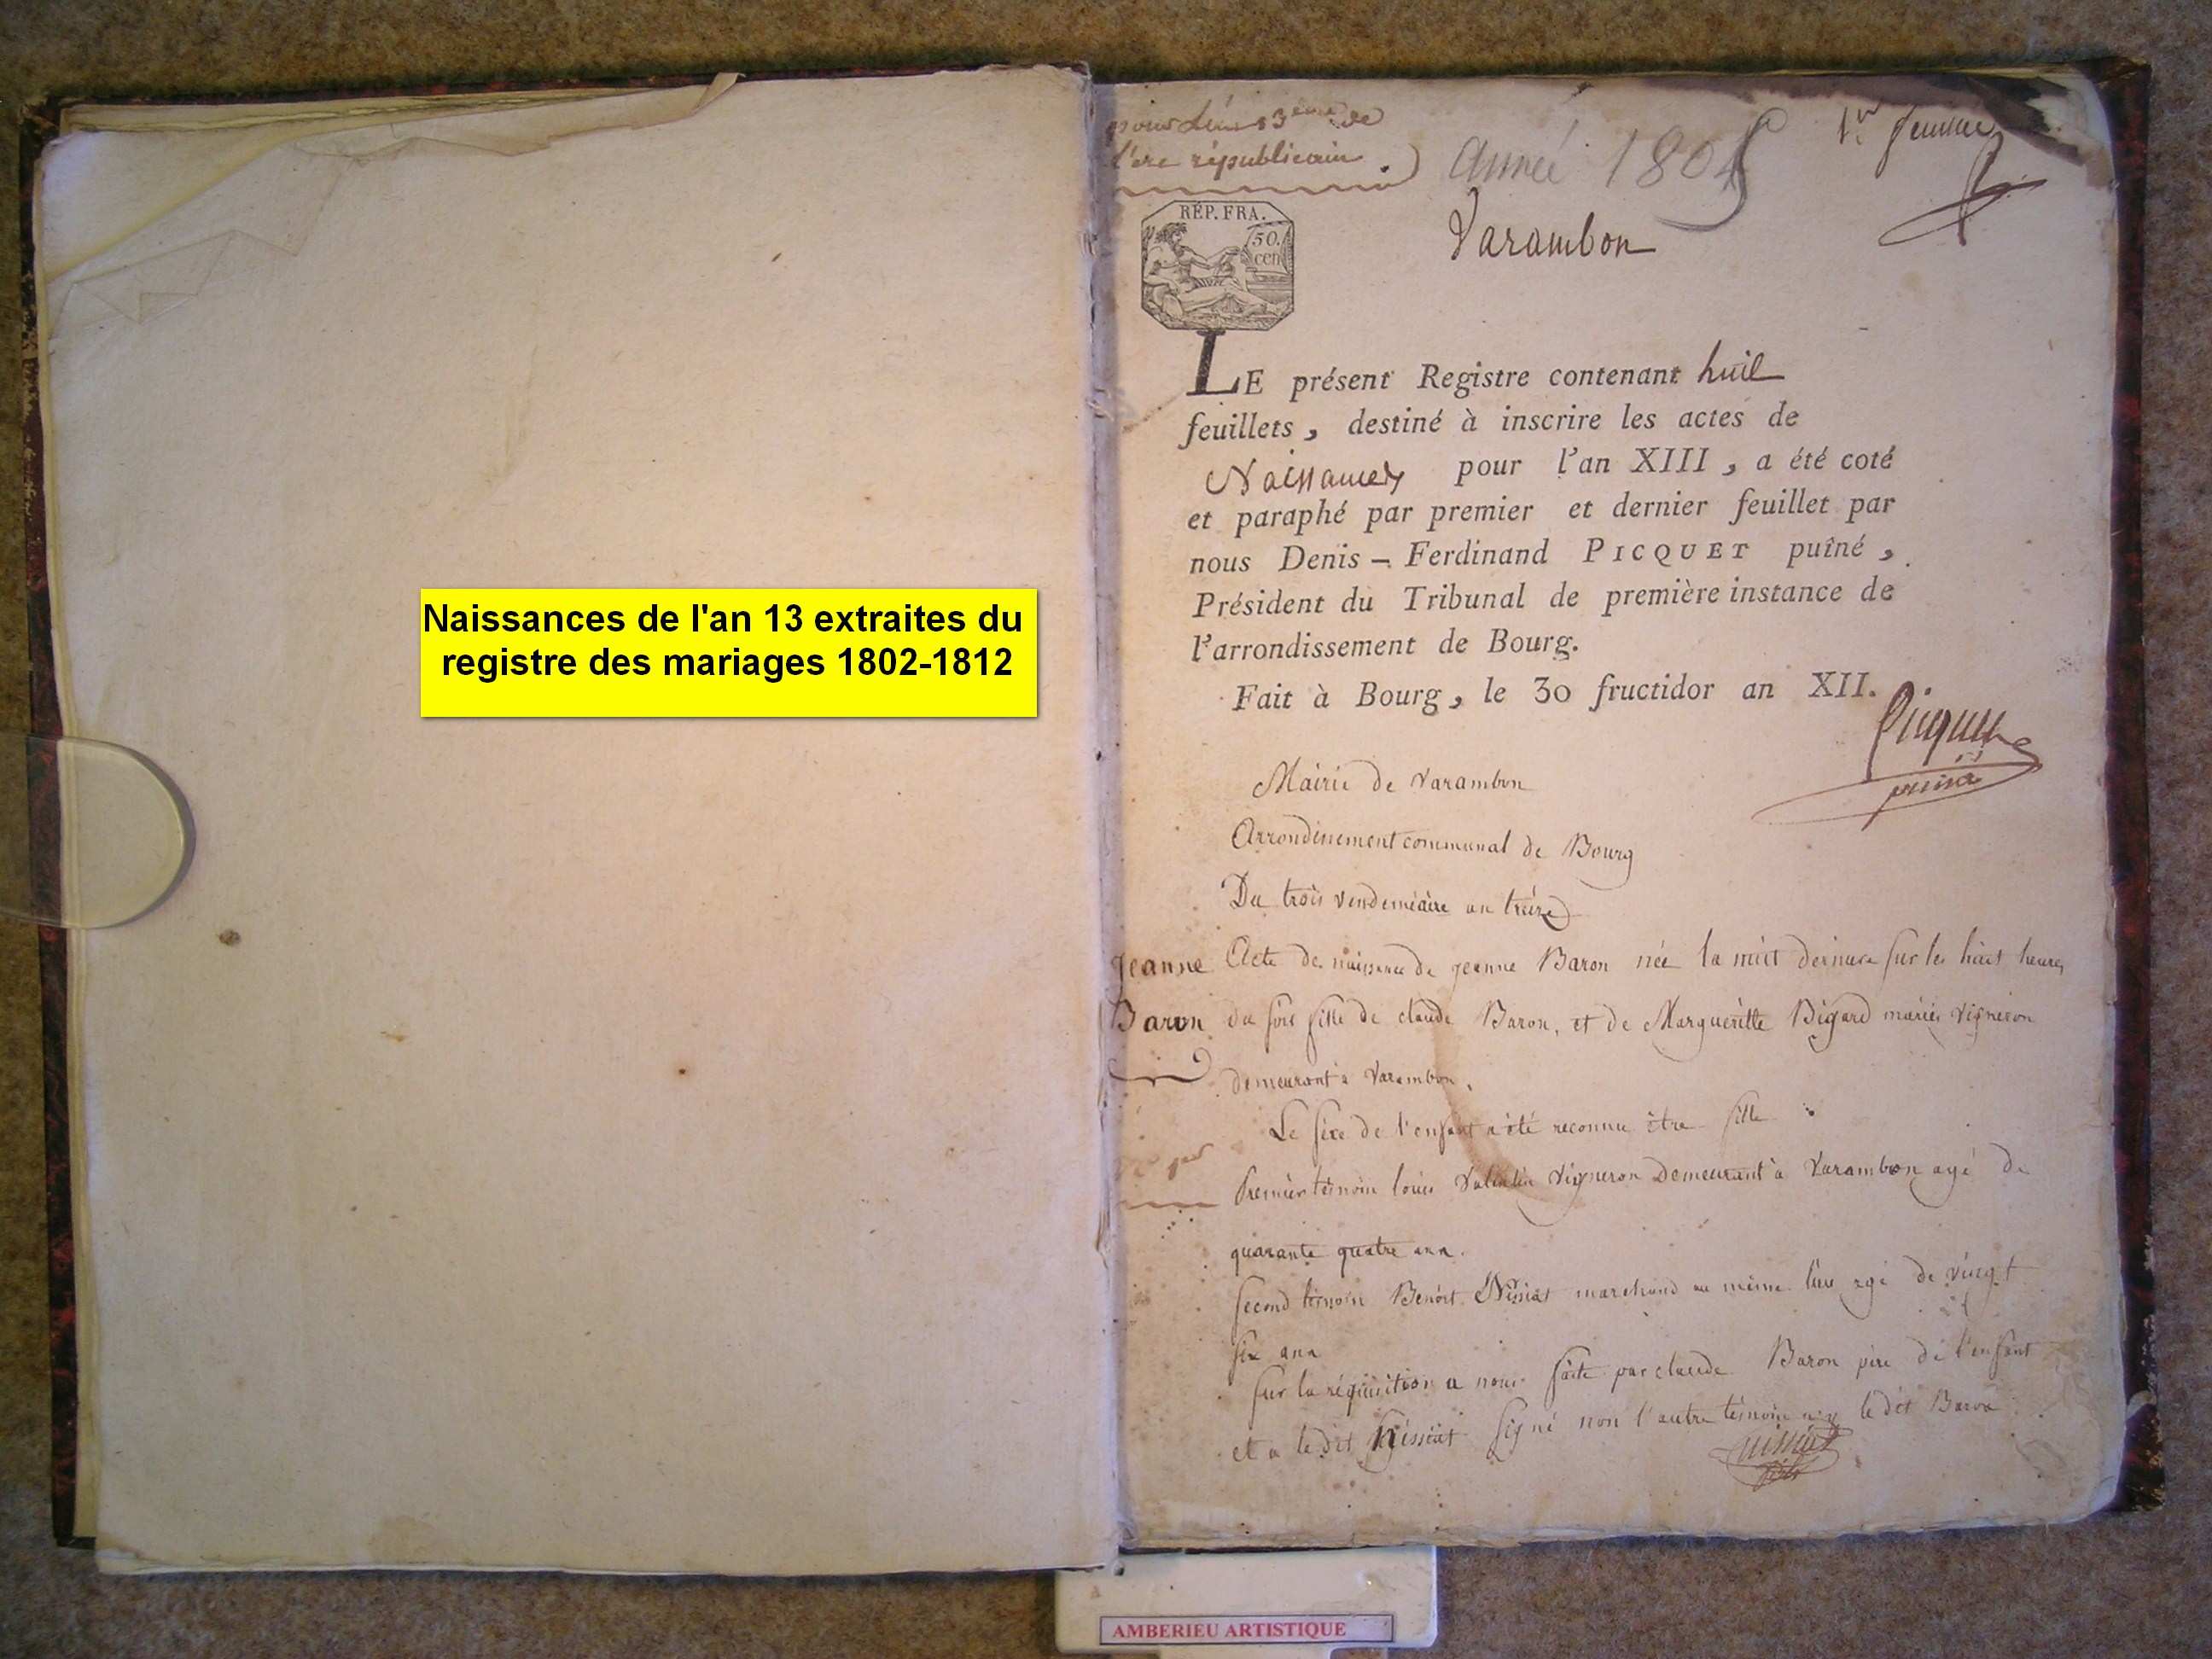 Naissances de l'an 13 extraites du
registre des mariages 1802-1812
pour l'an 13ème de
l'ere républicain
Année 1805
1er feuillet
Varambon
RÉP. FRA.
50.
cen
LE présent Registre contenant huit
feuillets, destiné à inscrire les actes de
Naissances pour l'an XIII, a été coté
et paraphé par premier et dernier feuillet par
nous Denis - Ferdinand PICQUET puîné,
Président du Tribunal de première instance de
l'arrondissement de Bourg.
Fait à Bourg, le 30 fructidor an XII.
Picquet
puiné
Mairie de Varambon
Arrondissement communal de Bourg
Du trois vendemiaire an treize
Jeanne
Baron
Acte de naissance de jeanne Baron née la nuit derniere sur les huit heures
du soir fille de claude Baron, et de Margueritte Bigard mariés vigneron
demeurant a Varambon.
Le sexe de l'enfant a été reconnu être fille
Premier témoin louis Valentin vigneron demeurant à Varambon agé de
quarante quatre ans.
second témoin Benoit Nissiat marchand au même lieu agé de vingt
six ans
sur la réquisition a nous faite par claude Baron père de l'enfant
et a le dit Nissiat signé non l'autre témoin ny le dit Baron
AMBERIEU ARTISTIQUE